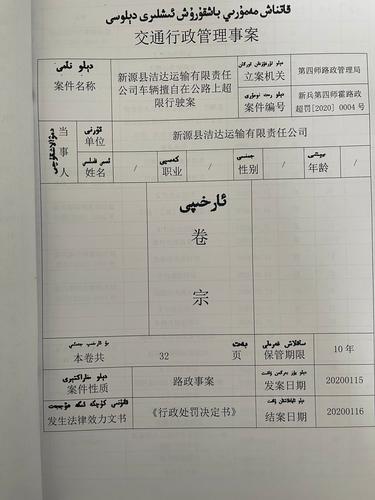 قاتناش مەمۇرىي باشقۇرۇش ئىشلىرى دېلوسى
交通行政管理事案
دېلو نامى
案件名称
新源县洁达运输有限责任
公司车辆擅自在公路上超
限行驶案
立案机关
第四师路政管理局
案件编号
新兵第四师霍路政
超罚[2020] 0004 号
当事人
ئورنى
单位
新源县洁达运输有限责任公司
姓名
/
كەسپى
职业
/
جىنسى
性别
/
年龄
/
ئارخىپى
卷
宗
本卷共
32
بەت
页
保管期限
10 年
案件性质
路政事案
发案日期
20200115
发生法律效力文书
《行政处罚决定书》
结案日期
20200116